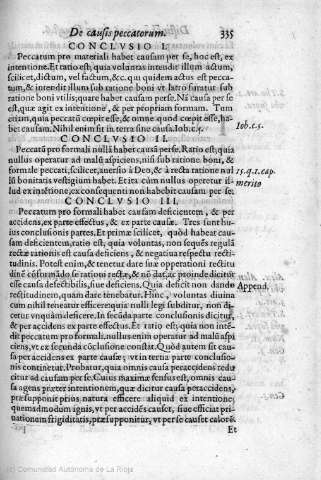 De causis peccatorum. 335
CONCLVSIO I.
Peccatum pro materiali habet causam per se, hoc est, ex
intentione. Et ratio est; quia voluntas intendit illum actum,
scilicet, dictum, vel factum, &c. qui quidem actus est pecca-
tum, & intendit illum sub ratione boni vt latro furatur sub
ratione boni vtilis; quare habet causam perse. Nã causa per se
est, quæ agit ex intentione, & per propriam formam. Tum
etiam, quia peccatũ cœpit esse, & omne quod cœpit esse, ha-
bet causam. Nihil enim fit in terra sine causa. Iob. c. 5.
Iob. c. 5.
CONCLVSIO II.
Peccatũ pro formali nullã habet causã perse. Ratio est; quia
nullus operatur ad malũ aspiciens, nisi sub ratione boni, &
formale peccati, scilicet, auersio à Deo, & à recta ratione nul
lũ bonitatis vestigium habet. Et ita cùm nullus operetur il-
lud ex intẽtione, ex consequenti non habebit causam per se.
15. q. 1. cap.
merito
CONCLVSIO III.
Peccatum pro formali habet causam deficientem, & per
accidens, ex parte effectus, & ex parte causæ. Tres sunt hu-
ius conclusionis partes. Et prima scilicet, quòd habeat cau-
sam deficientem, ratio est, quia voluntas, non sequẽs regulã
rectæ rationis est causa deficiens, & negatiua respectu recti-
tudinis. Potest enim, & tenetur dare suæ operationi rectitu
dinẽ cõformãdo se rationi rectæ, & nõ dat, ac proinde dicitur
esse causa defectibilis, siue deficiens. Quia deficit non dando
rectitudinem, quam dare tenebatur. Hinc, voluntas diuina
Append.
cum nihil teneatur efficere quia nulli legi subditur, non di-
cetur vnquàm deficere. In secũda parte conclusionis dicitur,
& per accidens ex parte effectus. Et ratio est; quia non intẽ-
dit peccatum pro formali, nullus enim operatur ad malũ aspi
ciens, vt ex secunda cõclusione constat. Quòd autem sit cau-
sa per accidens ex parte causæ; vt in tertia parte conclusio-
nis continetur. Probatur, quia omnis causa peraccidens redu
citur ad causam per se. Cuius maxima sensus est, omnis cau-
sa agens præter intentionem, quæ dicitur causa peraccidens,
præsupponit prius natura efficere aliquid ex intentione;
quemadmodum ignis, vt per accidẽs causet, siue efficiat pri-
uationem frigiditatis, præsupponitur, vt per se causet calorẽ.
Et
(c) Comunidad Autónoma de La Rioja